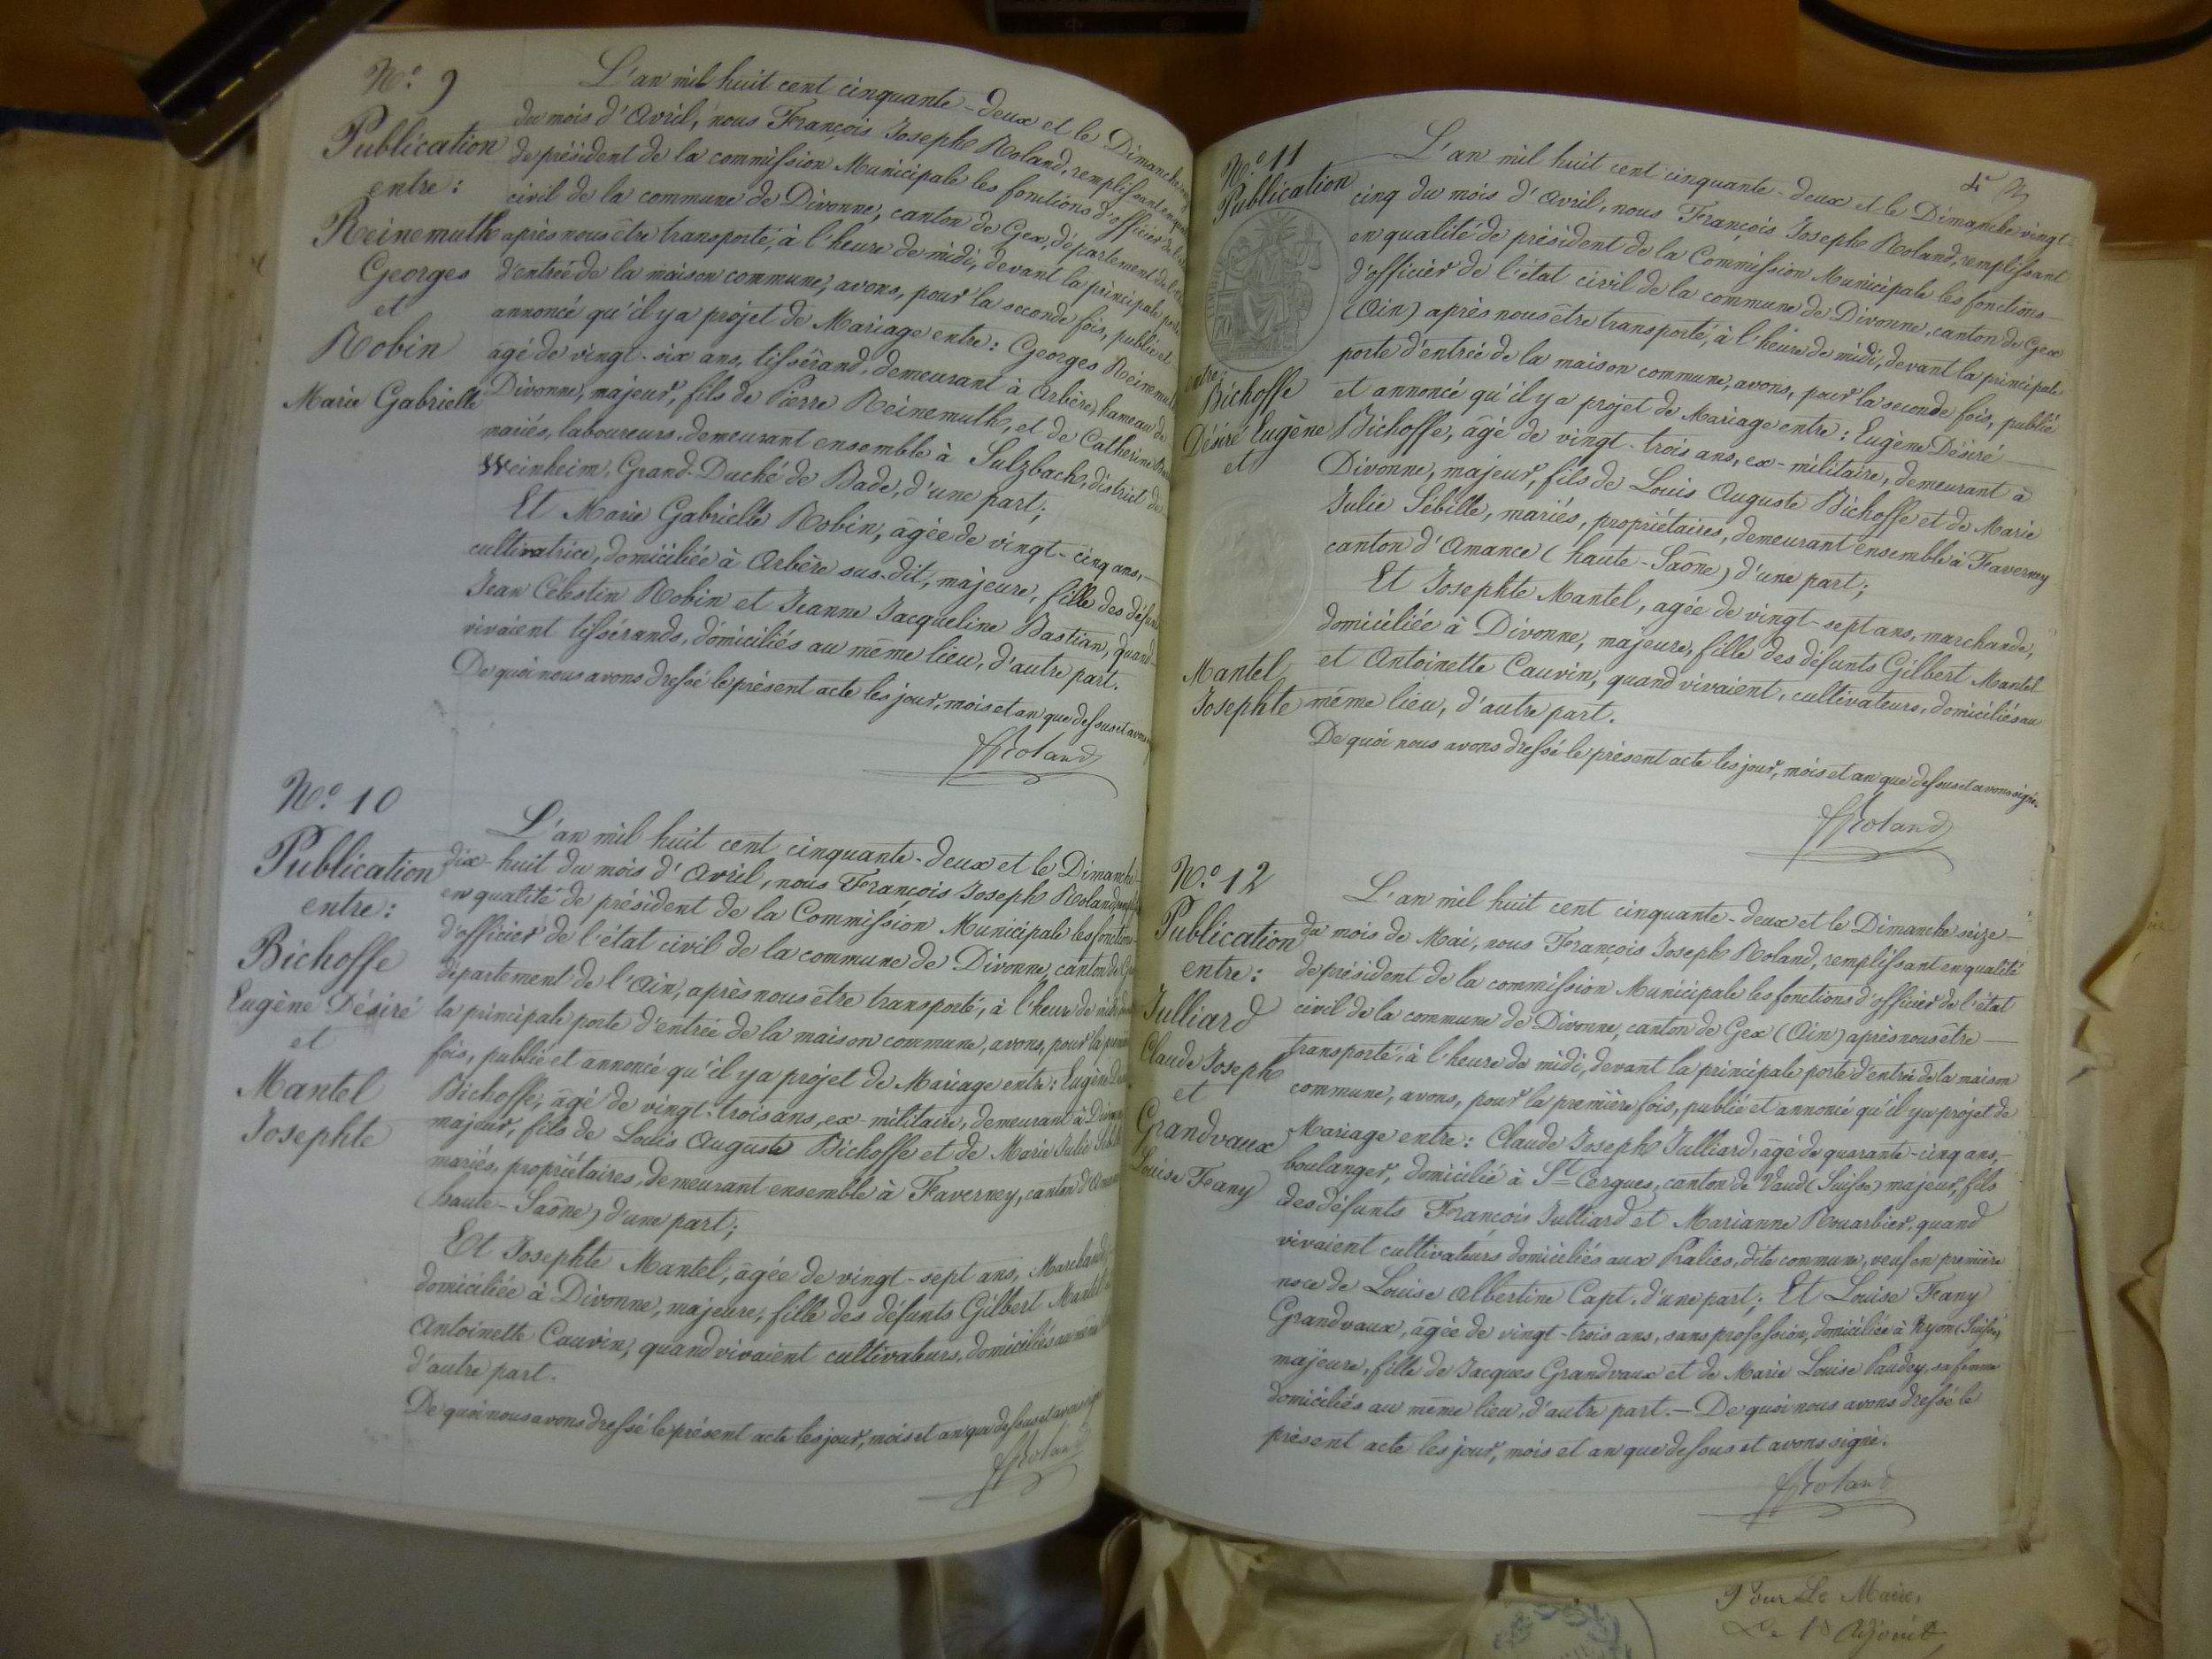 N.° 9
Publication
entre :
Reinemuth
Georges
et
Robin
Marie Gabrielle
L'an mil huit cent cinquante-deux et le Dimanche
du mois d'Avril, nous François Joseph Roland, remplissant en
de président de la commission Municipale les fonctions d'officier de l'
civil de la commune de Divonne, canton de Gex, département de
après nous être transporté, à l'heure de midi, devant la principale
d'entrée de la maison commune, avons, pour la seconde fois, publié et
annoncé qu'il y a projet de Mariage entre : Georges Reinemuth
âgé de vingt-six ans, tissérand, demeurant à Arbère, hameau de
Divonne, majeur, fils de Pierre Reinemuth, et de Catherine
mariés, laboureurs, demeurant ensemble à Sulzbach, district de
Weinheim, Grand-Duché de Bade, d'une part ;
Et Marie Gabrielle Robin, âgée de vingt-cinq ans,
cultivatrice, domiciliée à Arbère sus-dit, majeure, fille des défunts
Jean Célestin Robin et Jeanne Jacqueline Bastian, quand
vivaient tissérands, domiciliés au même lieu, d'autre part.
De quoi nous avons dressé le présent acte les jour, mois et an que dessus et avons
Roland
N.° 10
Publication
entre :
Bichoffe
Eugène Désiré
et
Mantel
Josephte
L'an mil huit cent cinquante-deux et le Dimanche
dix-huit du mois d'Avril, nous François Joseph Roland
en qualité de président de la Commission Municipale les fonctions
d'officier de l'état civil de la commune de Divonne, canton de Gex
département de l'Ain, après nous être transporté, à l'heure de midi
la principale porte d'entrée de la maison commune, avons, pour la première
fois, publié et annoncé qu'il y a projet de Mariage entre : Eugène
Bichoffe, âgé de vingt-trois ans, ex-militaire, demeurant à Divonne
majeur, fils de Louis Auguste Bichoffe et de Marie Julie
mariés, propriétaires, demeurant ensemble à Faverney, canton d'Amance
(haute-Saône) d'une part ;
Et Josephte Mantel, âgée de vingt-sept ans, Marchande
domiciliée à Divonne, majeure, fille des défunts Gilbert Mantel
Antoinette Cauvin, quand vivaient cultivateurs, domiciliés au même
d'autre part.
De quoi nous avons dressé le présent acte les jour, mois et an que dessus et avons signé
Roland
N.° 11
Publication
entre :
Bichoffe
Désiré Eugène
et
Mantel
Josephte
L'an mil huit cent cinquante-deux et le Dimanche vingt-
cinq du mois d'Avril, nous François Joseph Roland, remplissant
en qualité de président de la Commission Municipale les fonctions
d'officier de l'état civil de la commune de Divonne, canton de Gex
(Ain) après nous être transporté, à l'heure de midi, devant la principale
porte d'entrée de la maison commune, avons, pour la seconde fois, publié
et annoncé qu'il y a projet de Mariage entre : Eugène Désiré
Bichoffe, âgé de vingt-trois ans, ex-militaire, demeurant à
Divonne, majeur, fils de Louis Auguste Bichoffe et de Marie
Julie Sébille, mariés, propriétaires, demeurant ensemble à Faverney
canton d'Amance (haute-Saône) d'une part ;
Et Josephte Mantel, agée de vingt-sept ans, marchande,
domiciliée à Divonne, majeure, fille des défunts Gilbert Mantel
et Antoinette Cauvin, quand vivaient, cultivateurs, domiciliés au
même lieu, d'autre part.
De quoi nous avons dressé le présent acte les jour, mois et an que dessus et avons signé.
Roland
N.° 12
Publication
entre :
Julliard
Claude Joseph
et
Grandvaux
Louise Feany
L'an mil huit cent cinquante-deux et le Dimanche seize
du mois de Mai, nous François Joseph Roland, remplissant en qualité
de président de la commission Municipale les fonctions d'officier de l'état
civil de la commune de Divonne, canton de Gex (Ain) après nous être
transporté, à l'heure de midi, devant la principale porte d'entrée de la maison
commune, avons, pour la première fois, publié et annoncé qu'il y a projet de
Mariage entre : Claude Joseph Julliard, âgé de quarante-cinq ans,
boulanger, domicilié à St. Cergues, canton de Vaud (Suisse) majeur, fils
des défunts François Julliard et Marianne Rouarbier, quand
vivaient cultivateurs domiciliés aux Pralies, dite commune, veuf en première
noce de Louise Albertine Capt, d'une part ; Et Louise Feany
Grandvaux, âgée de vingt-trois ans, sans profession, domiciliée à Nyon (Suisse)
majeure, fille de Jacques Grandvaux et de Marie Louise Paudex, sa femme
domiciliés au même lieu, d'autre part. — De quoi nous avons dressé le
présent acte les jour, mois et an que dessus et avons signé.
Roland
Pour Le Maire,
Le 1er Adjoint